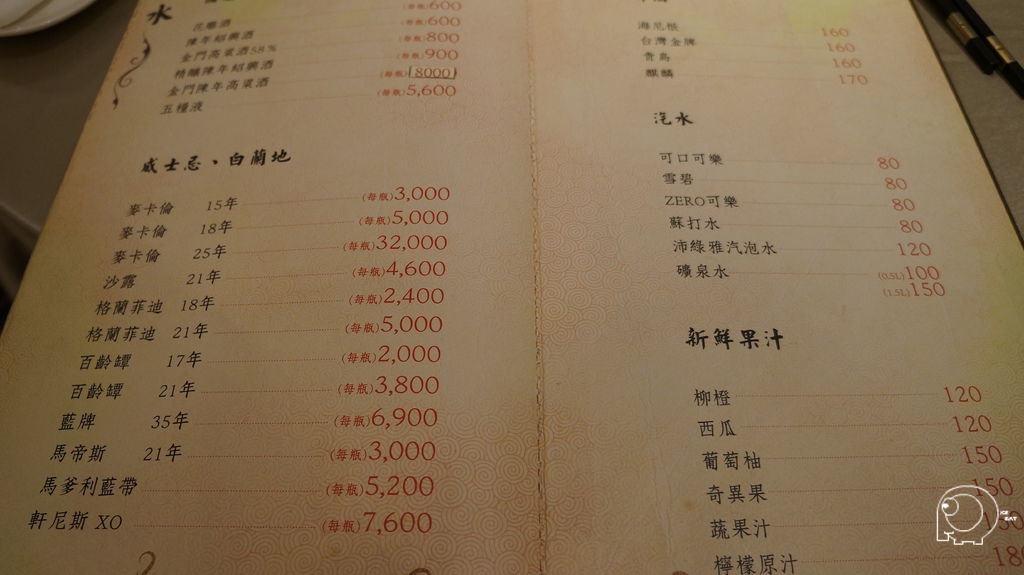 水
花雕酒 (每瓶)600
陳年紹興酒 (每瓶)600
金門高粱酒58% (每瓶)800
精釀陳年紹興酒 (每瓶)900
金門陳年高粱酒 (每瓶)(8000)
五糧液 (每瓶)5,600
威士忌、白蘭地
麥卡倫 15年 (每瓶)3,000
麥卡倫 18年 (每瓶)5,000
麥卡倫 25年 (每瓶)32,000
沙露 21年 (每瓶)4,600
格蘭菲迪 18年 (每瓶)2,400
格蘭菲迪 21年 (每瓶)5,000
百齡罈 17年 (每瓶)2,000
百齡罈 21年 (每瓶)3,800
藍牌 35年 (每瓶)6,900
馬帝斯 21年 (每瓶)3,000
馬爹利藍帶 (每瓶)5,200
軒尼斯 XO (每瓶)7,600
海尼根 160
台灣金牌 160
青島 160
麒麟 170
汽水
可口可樂 80
雪碧 80
ZERO可樂 80
蘇打水 80
沛綠雅汽泡水 120
礦泉水 (0.5L)100
(1.5L)150
新鮮果汁
柳橙 120
西瓜 120
葡萄柚 150
奇異果 150
蔬果汁 150
檸檬原汁 18